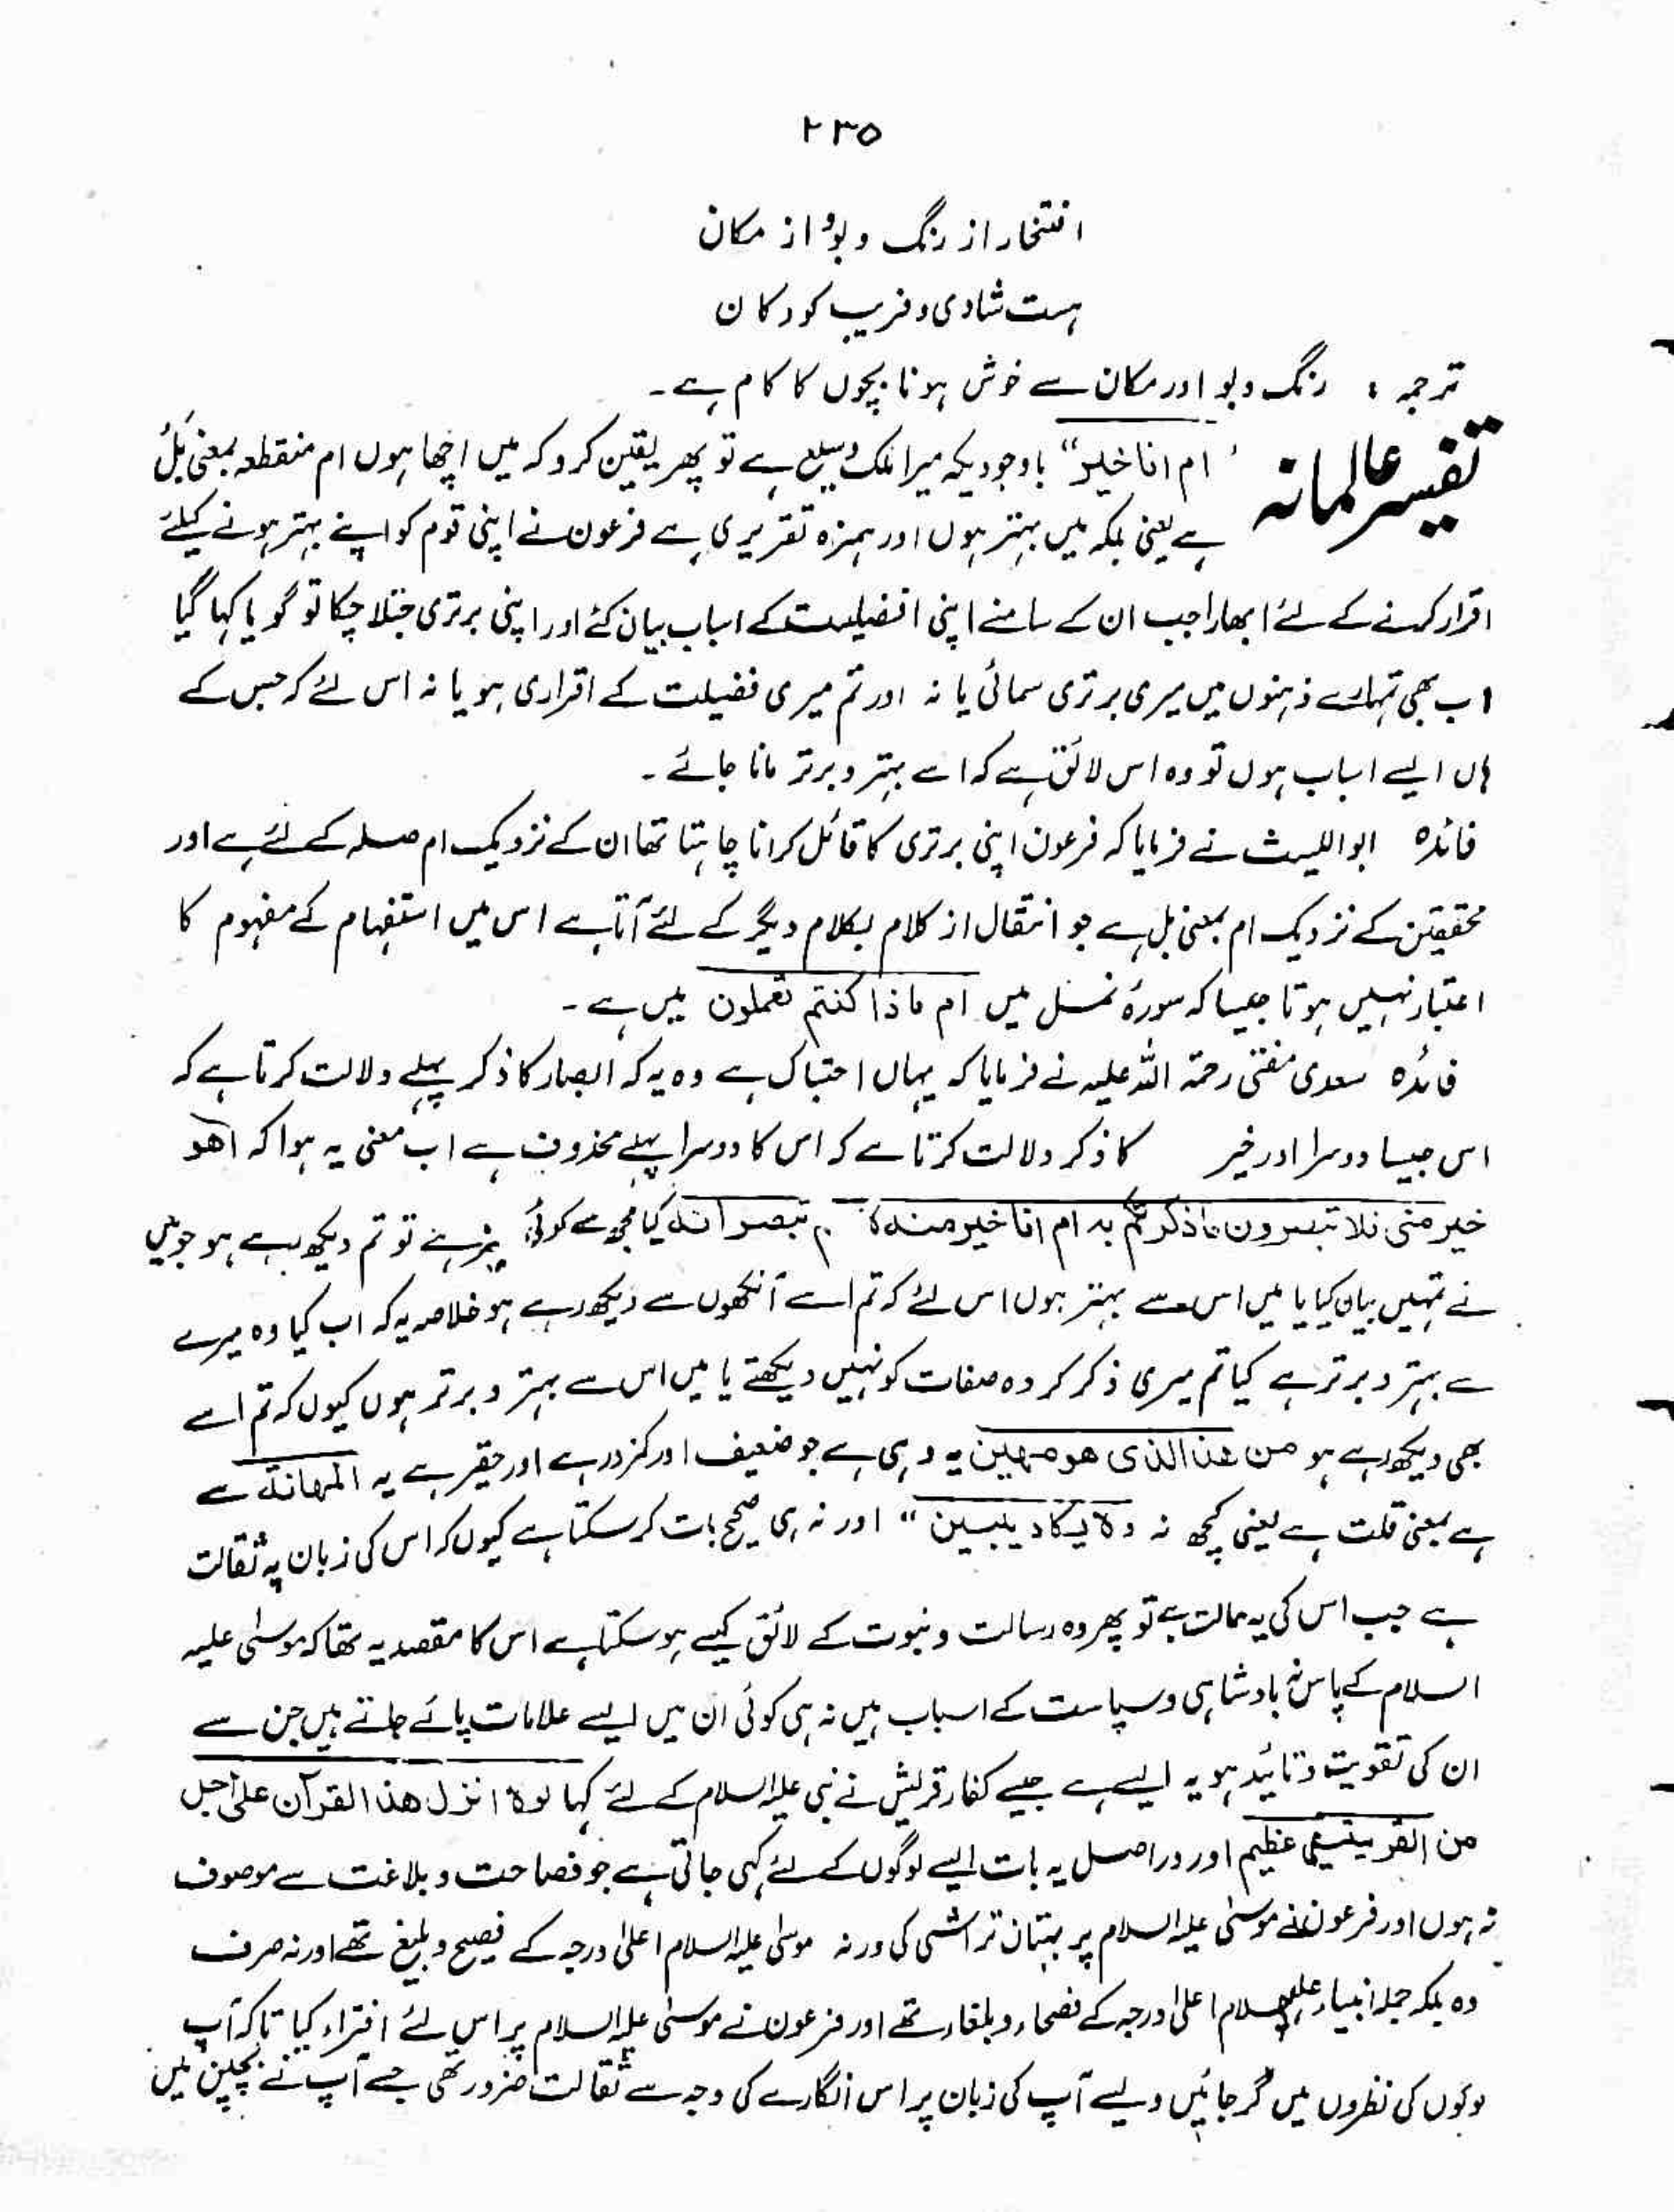 ۲۳۵
افتخار از رنگ و بوُ از مکان
ہست شادی و فریب کودکان
ترجمہ : رنگ و بو اور مکان سے خوش ہونا بچوں کا کام ہے ۔
تفسیر عالمانہ
' ام انا خیر" باوجودیکہ میرا ملک وسیع ہے تو پھر یقین کرو کہ میں اچھا ہوں ام منقطعہ بمعنی بَلْ
ہے یعنی بلکہ میں بہتر ہوں اور ہمزہ تقریری ہے فرعون نے اپنی قوم کو اپنے بہتر ہونے کیلئے
اقرار کرنے کے لئے ابھارا جب ان کے سامنے اپنی افضلیت کے اسباب بیان کئے اور اپنی برتری جتلا چکا تو گویا کہا گیا
اب بھی تمہارے ذہنوں میں میری برتری سمائی یا نہ اور تم میری فضیلت کے اقراری ہو یا نہ اس لئے کہ جس کے
ہاں ایسے اسباب ہوں تو وہ اس لائق ہے کہ اسے بہتر و برتر مانا جائے ۔
فائدہ ابواللیث نے فرمایا کہ فرعون اپنی برتری کا قائل کرانا چاہتا تھا ان کے نزدیک ام صلہ کے لئے ہے اور
محققین کے نزدیک ام بمعنی بل ہے جو انتقال از کلام بکلام دیگر کے لئے آتا ہے اس میں استفہام کے مفہوم کا
اعتبار نہیں ہوتا جیسا کہ سورۂ نمل میں ام ماذا کنتم تعملون میں ہے ۔
فائدہ سعدی مفتی رحمۃ اللہ علیہ نے فرمایا کہ یہاں احتباک ہے وہ یہ کہ ابصار کا ذکر پہلے دلالت کرتا ہے کہ
اس جیسا دوسرا اور خیر کا ذکر دلالت کرتا ہے کہ اس کا دوسرا پہلے محذوف ہے اب معنی یہ ہوا کہ اھو
خیر منی فلا تبصرون ما ذکرتکم بہ ام انا خیر منہ تبصرانہ کیا مجھ سے کوئی بہتر ہے تو تم دیکھ رہے ہو جو میں
نے تمہیں بیان کیا یا میں اس سے بہتر ہوں اس لئے کہ تم اسے آنکھوں سے دیکھ رہے ہو خلاصہ یہ کہ اب کیا وہ میرے
سے بہتر و برتر ہے کیا تم میری ذکر کردہ صفات کو نہیں دیکھتے یا میں اس سے بہتر و برتر ہوں کیوں کہ تم اسے
بھی دیکھ رہے ہو من ھذا الذی ھو مھین یہ وہی ہے جو ضعیف اور کمزور ہے اور حقیر ہے یہ المھانۃ سے
ہے بمعنی قلت ہے یعنی کچھ نہ ولا یکاد یبین " اور نہ ہی صحیح بات کر سکتا ہے کیوں کہ اس کی زبان پہ ثقالت
ہے جب اس کی یہ حالت ہے تو پھر وہ رسالت و نبوت کے لائق کیسے ہو سکتا ہے اس کا مقصد یہ تھا کہ موسیٰ علیہ
السلام کے پاس نہ بادشاہی و سیاست کے اسباب ہیں نہ ہی کوئی ان میں ایسے علامات پائے جاتے ہیں جن سے
ان کی تقویت و تائید ہو یہ ایسے ہے جیسے کفار قریش نے نبی علیہ السلام کے لئے کہا لولا انزل ھذا القرآن علی رجل
من القریتین عظیم اور دراصل یہ بات ایسے لوگوں کے لئے کہی جاتی ہے جو فصاحت و بلاغت سے موصوف
نہ ہوں اور فرعون نے موسیٰ علیہ السلام پر بہتان تراشی کی ورنہ موسیٰ علیہ السلام اعلیٰ درجہ کے فصیح و بلیغ تھے اور نہ صرف
وہ بلکہ جملہ انبیاء علیہم السلام اعلیٰ درجہ کے فصحاء و بلغاء تھے اور فرعون نے موسیٰ علیہ السلام پر اس لئے افتراء کیا تاکہ آپ
لوگوں کی نظروں میں گر جائیں ویسے آپ کی زبان پر اس انگارے کی وجہ سے ثقالت ضرور تھی جسے آپ نے بچپن میں